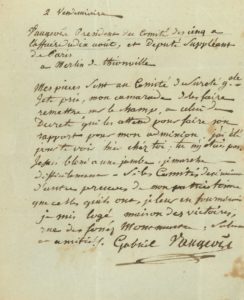 2 Vendemiaire
Vaugeois President du Comité des cinq a
l'affaire du dix aout, et deputé suppléant
de Paris
a Merlin de thionville
Mes pieces sont au Comité de Sureté gale
Je te prie, mon camarade de les faire
remettre sur le champ a celui de
Decrets qui les attend pour faire son
rapport pour mon admission, j'ai été
pour te voir hier chez toi; tu n'y étais pas
blessé a une jambe, je marche
difficilement. Si les Comités desiraient
d'autres preuves de mon patriotisme
que celles qu'ils ont, je leur en fournirai
je suis logé maison des victoires,
rue des fossés Montmartre. Salut
et amitié. Gabriel Vaugeois